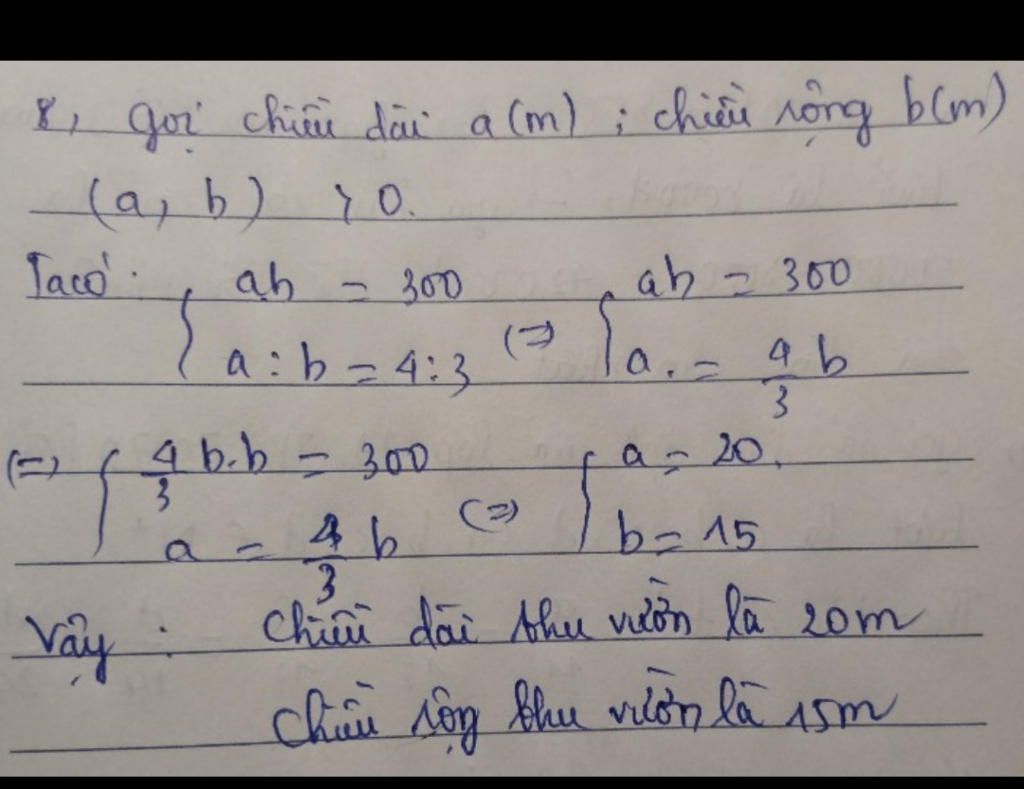 8, Gọi chiều dài a(m) ; chiều rộng b(m)
(a, b) > 0.
Ta có: { ab = 300 (=) { ab = 300
a : b = 4 : 3 a. = 4/3 b
(=) { 4/3 b.b = 300 (=) { a = 20.
a = 4/3 b b = 15
Vậy : Chiều dài khu vườn là 20m
Chiều rộng khu vườn là 15m